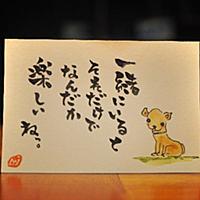 一緒にいると
それだけで
なんだか
楽しいねっ。